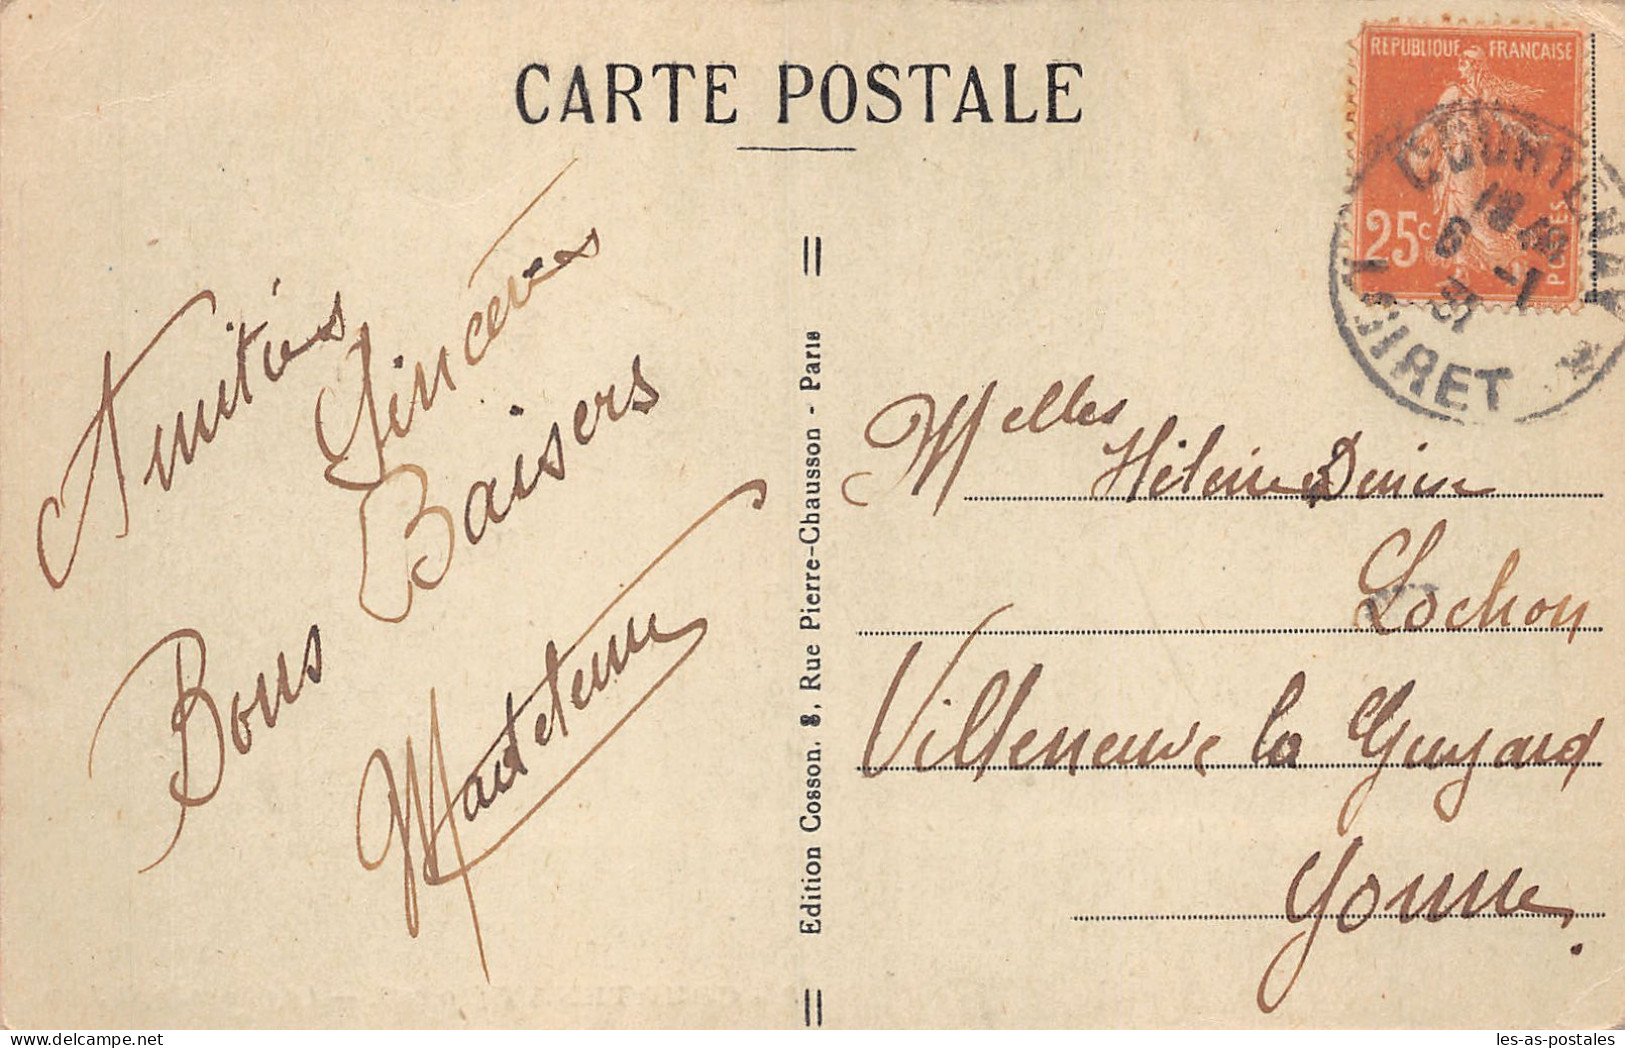 CARTE POSTALE
REPUBLIQUE FRANÇAISE
25c
POSTES
COURTENAY
18
6 -1
31
LOIRET
Amitiés Sincères
Bons Baisers
Edition Cosson. 8, Rue Pierre-Chausson - Paris
Melles Hélène Denise
Lochon
Villeneuve la Guyard
Yonne.
les-as-postales